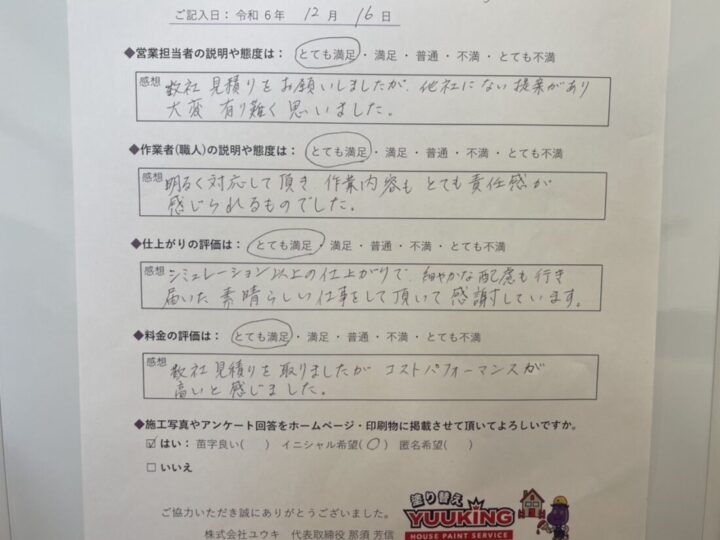 ご記入日：令和 6年 12月 16日
◆営業担当者の説明や態度は： とても満足・満足・普通・不満・とても不満
感想 数社 見積りをお願いしましたが、他社にない提案があり
大変 有り難く思いました。
◆作業者(職人)の説明や態度は： とても満足・満足・普通・不満・とても不満
感想 明るく対応して頂き、作業内容も とても責任感が
感じられるものでした。
◆仕上がりの評価は： とても満足・満足・普通・不満・とても不満
感想 シミュレーション以上の仕上がりで、細やかな配慮も行き
届いた 素晴らしい仕事をして頂いて 感謝しています。
◆料金の評価は： とても満足・満足・普通・不満・とても不満
感想 数社 見積りを取りましたが コストパフォーマンスが
高いと感じました。
◆施工写真やアンケート回答をホームページ・印刷物に掲載させて頂いてよろしいですか。
☑ はい： 苗字良い( ) イニシャル希望(○) 匿名希望( )
□ いいえ
ご協力いただき誠にありがとうございました。
株式会社ユウキ 代表取締役 那須 芳信
塗り替え
YUUKING
HOUSE PAINT SERVICE